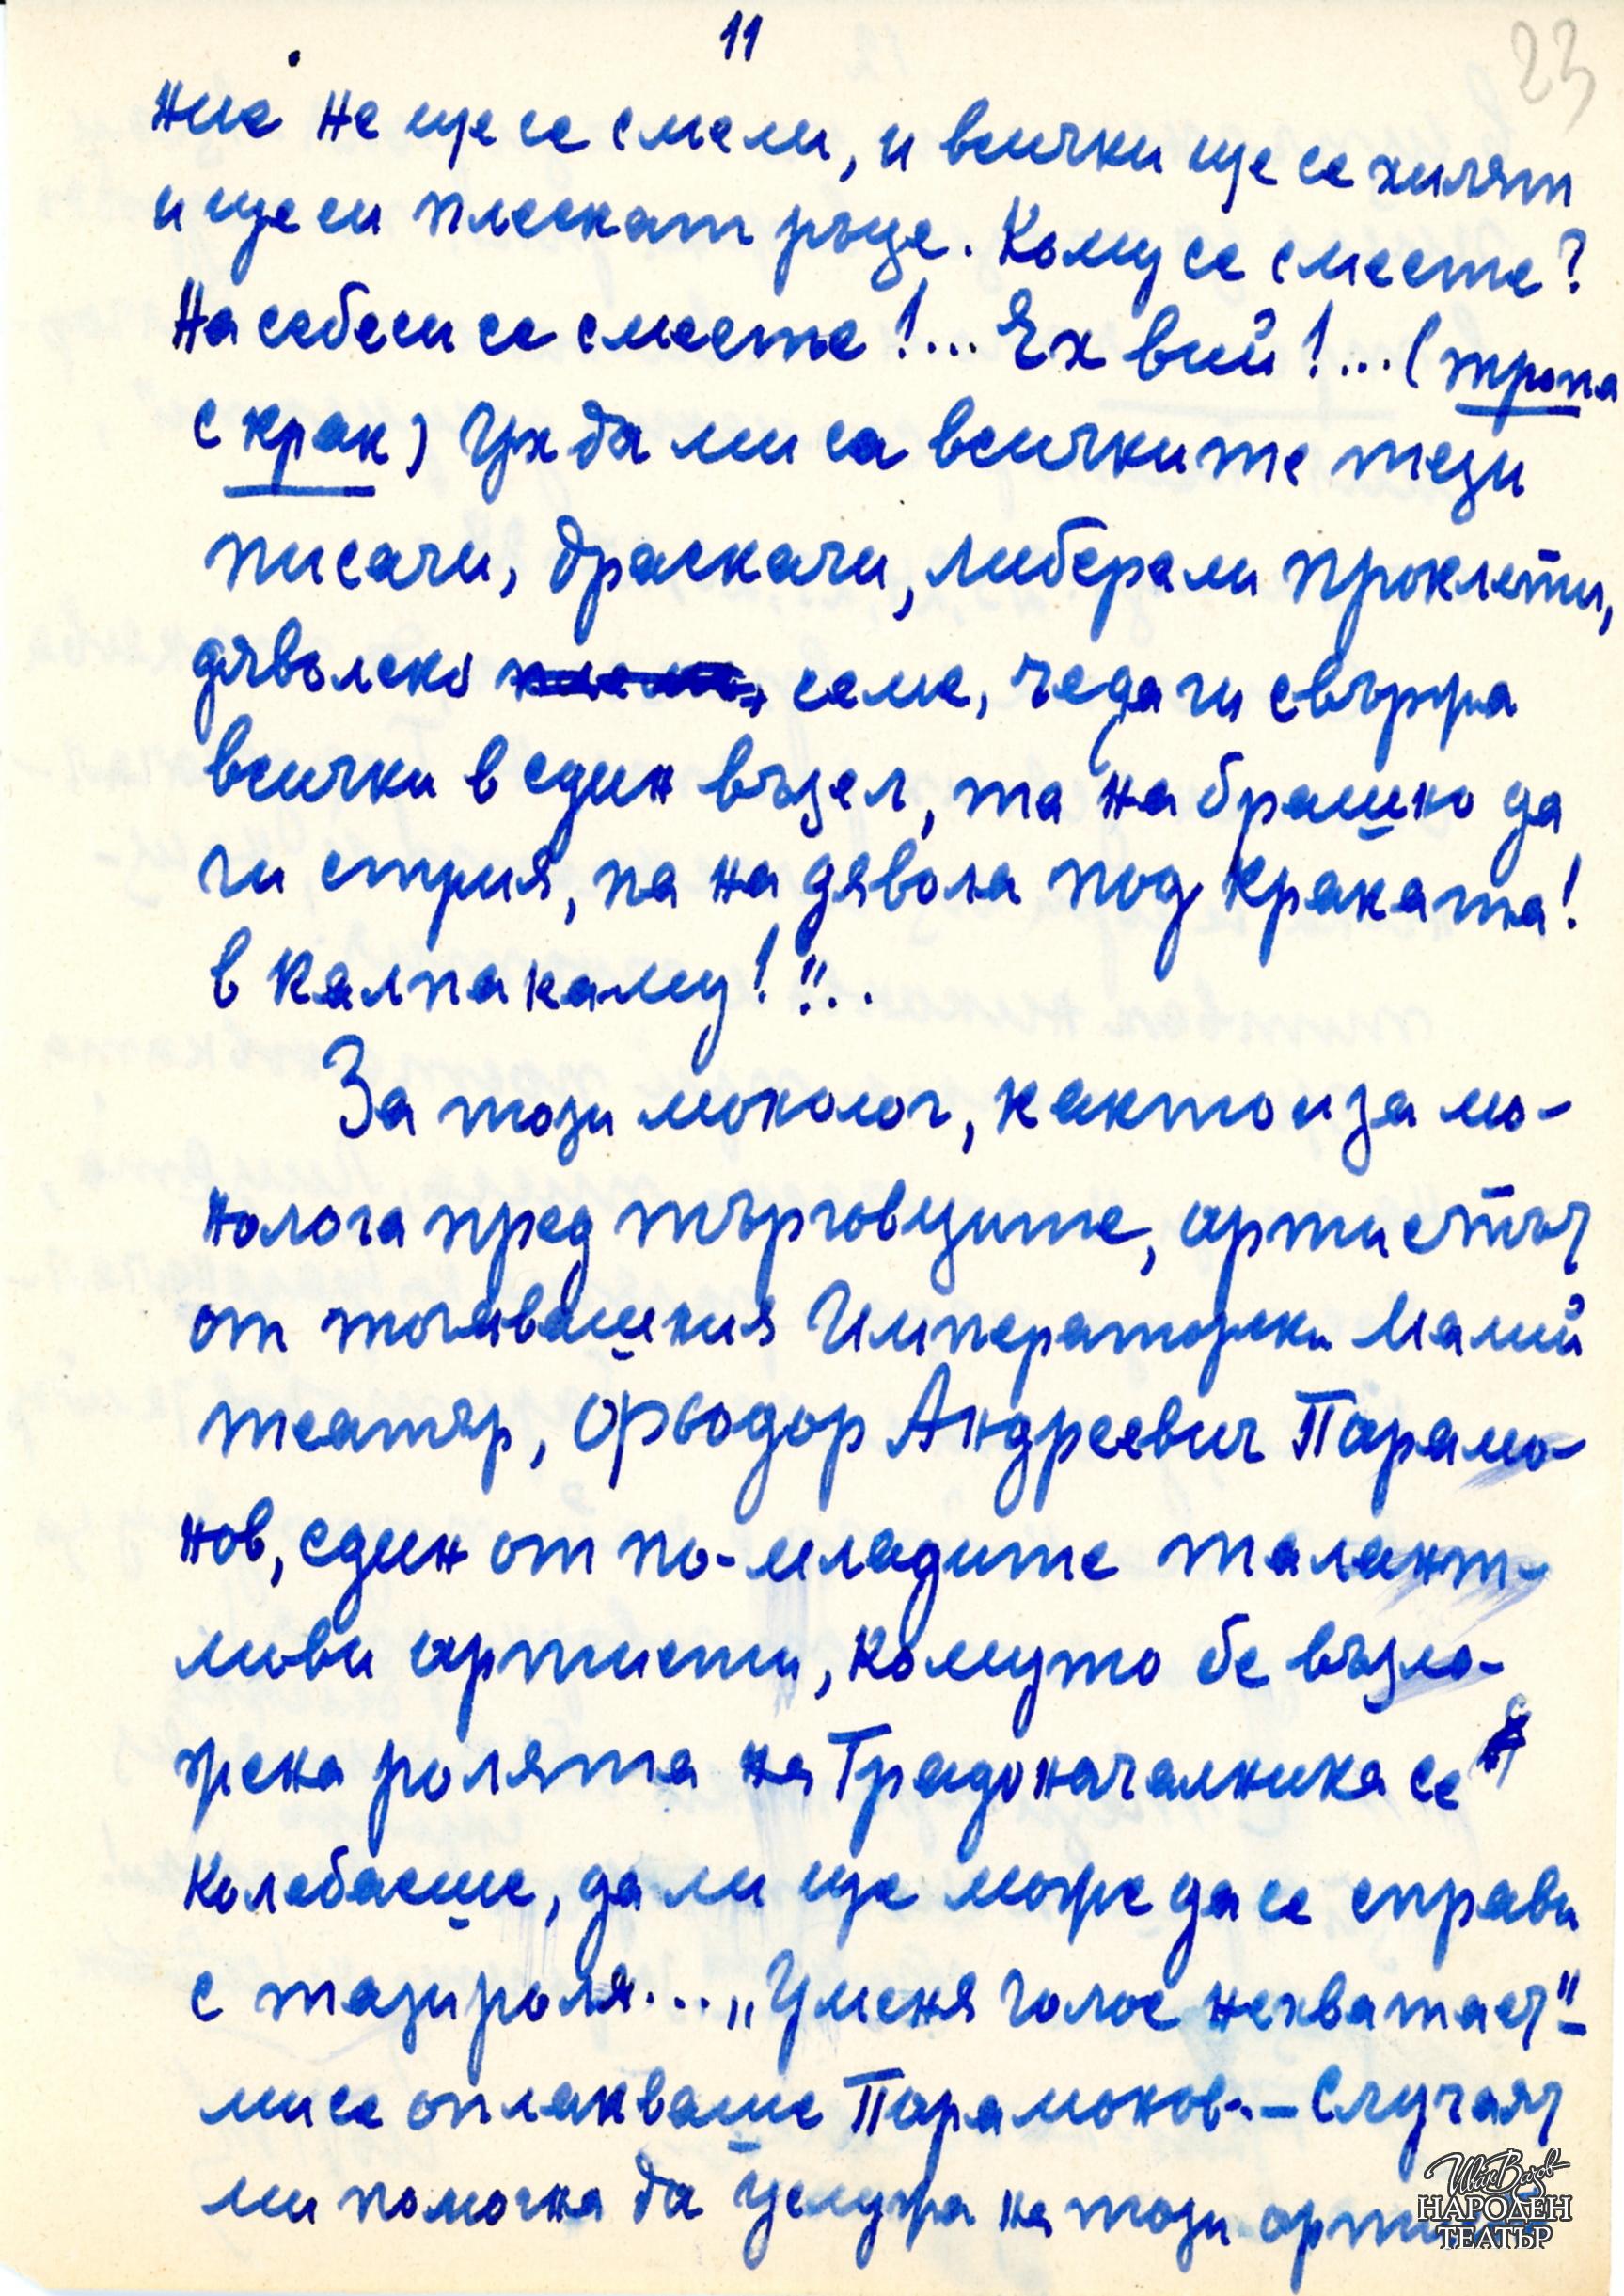 11
23
ние не ще се смели, и всички ще се хилят
и ще си плескат ръце. Кому се смеете?
На себе си се смеете!... Ех вий!... (тропа
с крак) Ух да ми са всичките тези
писачи, драскачи, либерали проклети,
дяволско семе, че да ги свържа
всички в един възел, та на брашно да
ги стрия, па на дявола под краката!
в калпака му!!!..
За този монолог, както и за мо-
нолога пред търговците, артистът
от тогавашния Императорски Малий
театър, Фьодор Андреевич Парамо-
нов, един от по-младите талант-
ливи артисти, комуто бе възло-
жена ролята на Градоначалника се
колебаеше, дали ще може да се справи
с тази роля... „У меня голос нехватает"-
ми се оплакваше Парамонов. - Случаят
ми помогна да услужа на този
Ив. Вазов
НАРОДЕН
ТЕАТЪР